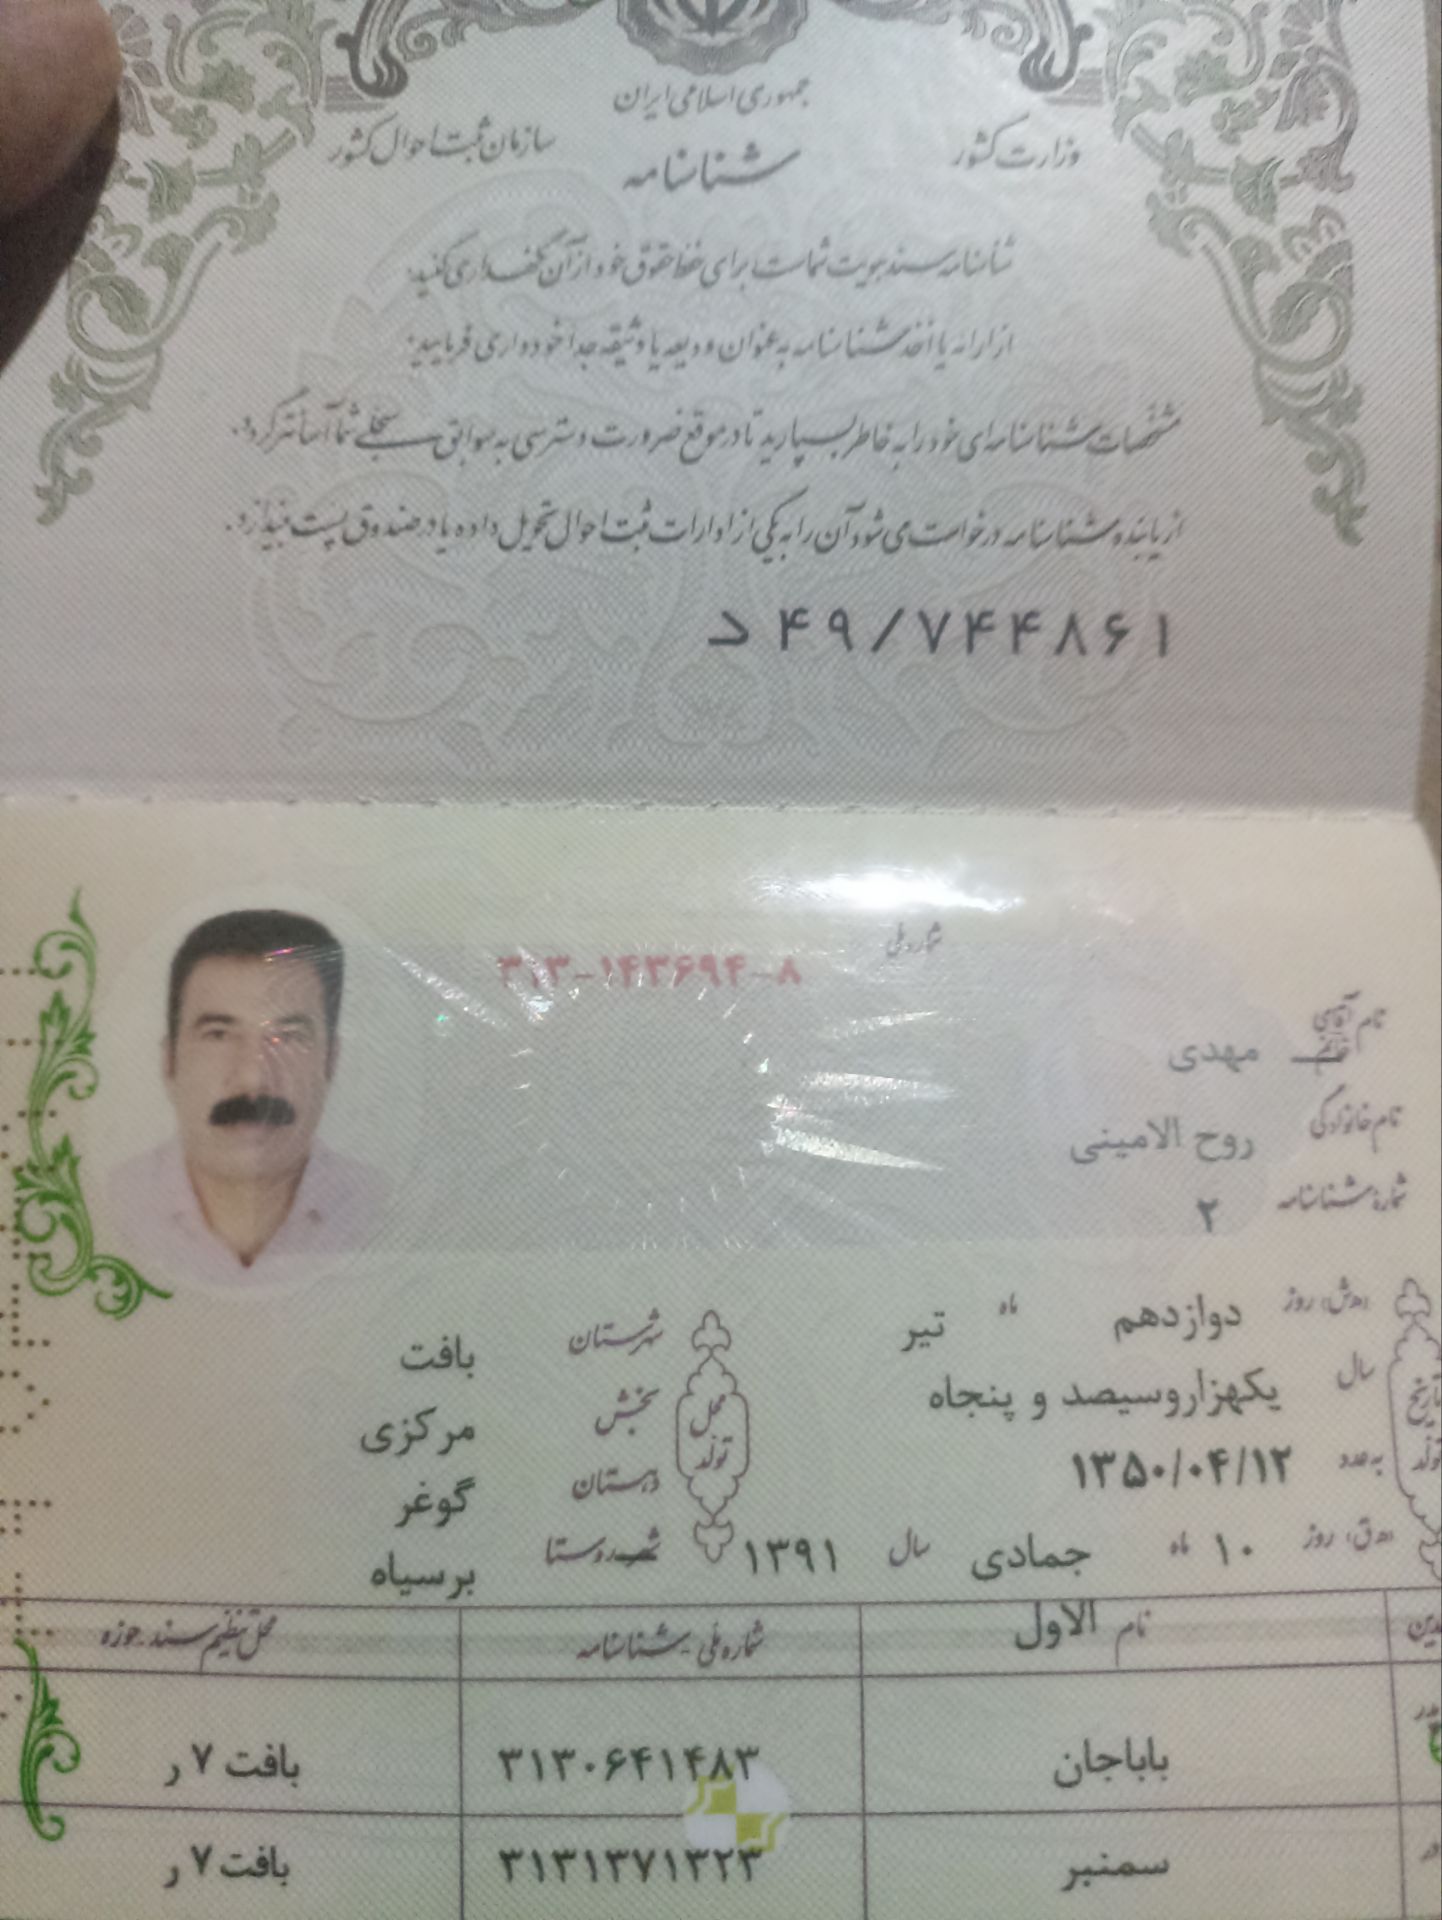 جمهوری اسلامی ایران
وزارت کشور
شناسنامه
سازمان ثبت احوال کشور
شناسنامه سند هویت شماست برای حفظ حقوق خود از آن نگهداری کنید.
از ارائه یا اخذ شناسنامه به عنوان ودیعه یا وثیقه جداً خودداری فرمایید.
مشخصات شناسنامه‌ای خود را به خاطر بسپارید تا در موقع ضرورت دسترسی به سوابق سجلی شما آسانتر گردد.
از یابنده شناسنامه درخواست می شود آن را به یکی از ادارات ثبت احوال تحویل داده یا در صندوق پست بیندازد.
د ۴۹/۷۴۴۸۶۱
شماره ملی ۳۱۳-۱۴۳۶۹۴-۸
نام آقای خانم مهدی
نام خانوادگی روح الامینی
شماره شناسنامه ۲
تاریخ تولد
(ه.ش) روز دوازدهم ماه تیر
سال یکهزاروسیصد و پنجاه
به عدد ۱۳۵۰/۰۴/۱۲
(ه.ق) روز ۱۰ ماه جمادی الاول سال ۱۳۹۱
محل تولد
شهرستان بافت
بخش مرکزی
دهستان گوغر
شهر روستا برسیاه
نام شماره ملی - شناسنامه محل تنظیم سند - حوزه
باباجان ۳۱۳۰۶۴۱۴۸۳ بافت ۷ ر
سمنبر ۳۱۳۱۳۷۱۳۲۳ بافت ۷ ر